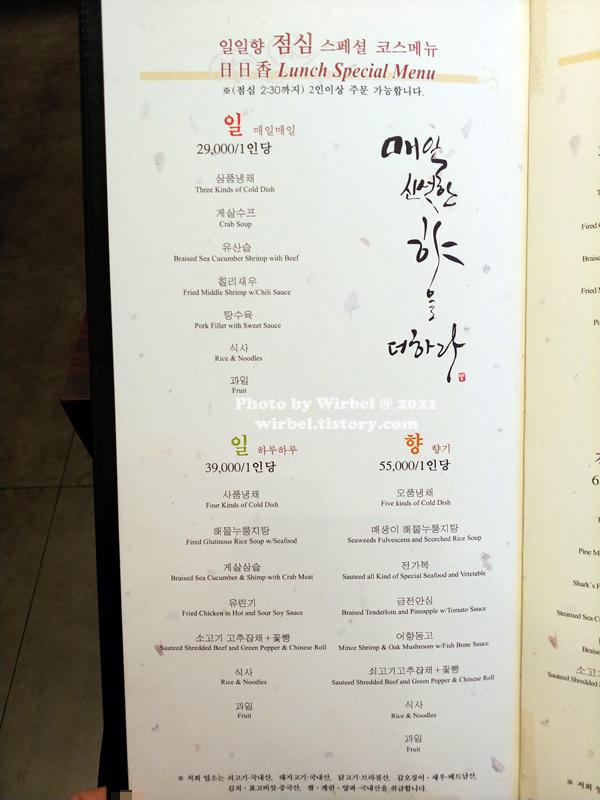 일일향 점심 스페셜 코스메뉴
日日香 Lunch Special Menu
※(점심 2:30까지) 2인이상 주문 가능합니다.
일 매일매일
29,000/1인당
삼품냉채
Three Kinds of Cold Dish
게살수프
Crab Soup
유산슬
Braised Sea Cucumber Shrimp with Beef
칠리새우
Fried Middle Shrimp w/Chili Sauce
탕수육
Pork Fillet with Sweet Sauce
식사
Rice & Noodles
과일
Fruit
매일
신선한
향
을
더하라
Photo by Wirbel @ 2021
wirbel.tistory.com
일 하루하루
39,000/1인당
사품냉채
Four Kinds of Cold Dish
해물누룽지탕
Fired Glutinous Rice Soup w/Seafood
게살삼슬
Braised Sea Cucumber & Shimp with Crab Meat
유린기
Fried Chicken in Hot and Sour Soy Sauce
소고기 고추잡채+꽃빵
Sauteed Shredded Beef and Green Pepper & Chinese Roll
식사
Rice & Noodles
과일
Fruit
향 향기
55,000/1인당
오품냉채
Five kinds of Cold Dish
매생이 해물누룽지탕
Seaweeds Fulvescens and Scorched Rice Soup
전가복
Sauteed all Kind of Special Seafood and Vetetable
금전안심
Braised Tenderloin and Pineapple w/Tomato Sauce
어향동고
Mince Shrimp & Oak Mushroom w/Fish Bone Sauce
쇠고기고추잡채+꽃빵
Sauteed Shredded Beef and Green Pepper & Chinese Roll
식사
Rice & Noodles
과일
Fruit
※ 저희 업소는 쇠고기-국내산, 돼지고기-국내산, 닭고기-브라질산, 갑오징어·새우-베트남산,
김치·표고버섯-중국산, 쌀·계란·양파-국내산을 취급합니다.
Fired G
Braise
Fried M
Po
6
Pine M
Shark's F
Steamed Sea C
Braise
소고기
Sauteed Shredded
※ 저희 업